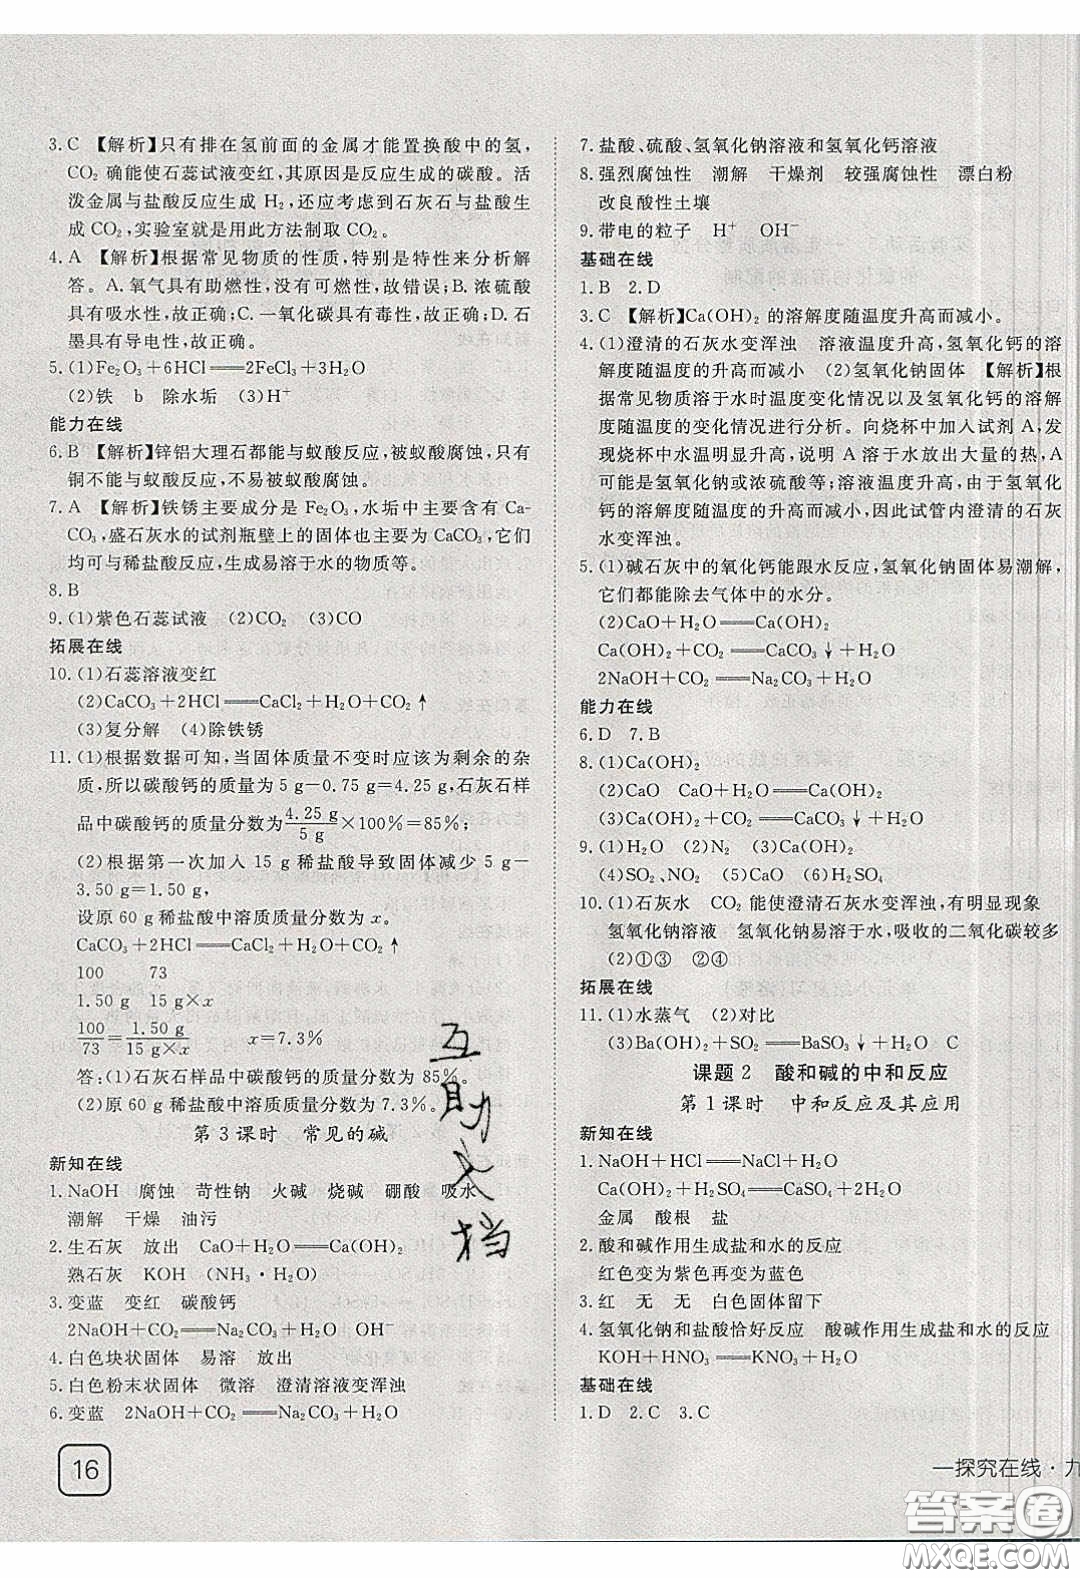 3. C 【解析】只有排在氢前面的金属才能置换酸中的氢,
CO₂ 确能使石蕊试液变红,其原因是反应生成的碳酸。活
泼金属与盐酸反应生成 H₂,还应考虑到石灰石与盐酸生
成 CO₂,实验室就是用此方法制取 CO₂。
4. A 【解析】根据常见物质的性质,特别是特性来分析解
答。A. 氧气具有助燃性,没有可燃性,故错误;B. 浓硫酸
具有吸水性,故正确;C. 一氧化碳具有毒性,故正确;D. 石
墨具有导电性,故正确。
5. (1)Fe₂O₃+6HCl══2FeCl₃+3H₂O
(2)铁 b 除水垢 (3)H⁺
能力在线
6. B 【解析】锌铝大理石都能与蚁酸反应,被蚁酸腐蚀,只有
铜不能与蚁酸反应,不易被蚁酸腐蚀。
7. A 【解析】铁锈主要成分是 Fe₂O₃,水垢中主要含有 Ca-
CO₃,盛石灰水的试剂瓶壁上的固体也主要是 CaCO₃,它们
均可与稀盐酸反应,生成易溶于水的物质等。
8. B
9. (1)紫色石蕊试液 (2)CO₂ (3)CO
拓展在线
10. (1)石蕊溶液变红
(2)CaCO₃+2HCl══CaCl₂+H₂O+CO₂↑
(3)复分解 (4)除铁锈
11. (1)根据数据可知,当固体质量不变时应该为剩余的杂
质,所以碳酸钙的质量为 5 g-0.75 g=4.25 g,石灰石样
品中碳酸钙的质量分数为4.25 g/5 g×100%=85%;
(2)根据第一次加入 15 g 稀盐酸导致固体减少 5 g-
3.50 g=1.50 g,
设原 60 g 稀盐酸中溶质质量分数为 x。
CaCO₃+2HCl══CaCl₂+H₂O+CO₂↑
100 73
1.50 g 15 g×x
100/73=1.50 g/15 g×x x=7.3%
答:(1)石灰石样品中碳酸钙的质量分数为 85%。
(2)原 60 g 稀盐酸中溶质质量分数为 7.3%。
第 3 课时 常见的碱
新知在线
1. NaOH 腐蚀 苛性钠 火碱 烧碱 硼酸 吸水
潮解 干燥 油污
2. 生石灰 放出 CaO+H₂O══Ca(OH)₂
熟石灰 KOH (NH₃·H₂O)
3. 变蓝 变红 碳酸钙
2NaOH+CO₂══Na₂CO₃+H₂O OH⁻
4. 白色块状固体 易溶 放出
5. 白色粉末状固体 微溶 澄清溶液变浑浊
6. 变蓝 2NaOH+CO₂══Na₂CO₃+H₂O
16
7. 盐酸、硫酸、氢氧化钠溶液和氢氧化钙溶液
8. 强烈腐蚀性 潮解 干燥剂 较强腐蚀性 漂白粉
改良酸性土壤
9. 带电的粒子 H⁺ OH⁻
基础在线
1. B 2. D
3. C 【解析】Ca(OH)₂ 的溶解度随温度升高而减小。
4. (1)澄清的石灰水变浑浊 溶液温度升高,氢氧化钙的溶
解度随温度的升高而减小 (2)氢氧化钠固体 【解析】根
据常见物质溶于水时温度变化情况以及氢氧化钙的溶解
度随温度的变化情况进行分析。向烧杯中加入试剂 A,发
现烧杯中水温明显升高,说明 A 溶于水放出大量的热,A
可能是氢氧化钠或浓硫酸等;温度升高,由于氢氧化
钙的溶解度随温度的升高而减小,因此试管内澄清的石灰
水变浑浊。
5. (1)碱石灰中的氧化钙能跟水反应,氢氧化钠固体易潮解,
它们都能除去气体中的水分。
(2)CaO+H₂O══Ca(OH)₂
Ca(OH)₂+CO₂══CaCO₃↓+H₂O
2NaOH+CO₂══Na₂CO₃+H₂O
能力在线
6. D 7. B
8. (1)Ca(OH)₂
(2)CaO CaO+H₂O══Ca(OH)₂
Ca(OH)₂+CO₂══CaCO₃↓+H₂O
9. (1)H₂O (2)N₂ (3)Ca(OH)₂
(4)SO₂、NO₂ (5)CaO (6)H₂SO₄
10. (1)石灰水 CO₂ 能使澄清石灰水变浑浊,有明显现象
氢氧化钠溶液 氢氧化钠易溶于水,吸收的二氧化碳较多
(2)①③ ②④
拓展在线
11. (1)水蒸气 (2)对比
(3)Ba(OH)₂+SO₂══BaSO₃↓+H₂O C
课题 2 酸和碱的中和反应
第 1 课时 中和反应及其应用
新知在线
1. NaOH+HCl══NaCl+H₂O
Ca(OH)₂+H₂SO₄══CaSO₄+2H₂O
金属 酸根 盐
2. 酸和碱作用生成盐和水的反应
红色变为紫色再变为蓝色
3. 红 无 无 白色固体留下
4. 氢氧化钠和盐酸恰好反应 酸碱作用生成盐和水的反应
KOH+HNO₃══KNO₃+H₂O
基础在线
1. D 2. C 3. C
一探究在线·九
互
助
文
档
答案圈
MXQE.COM